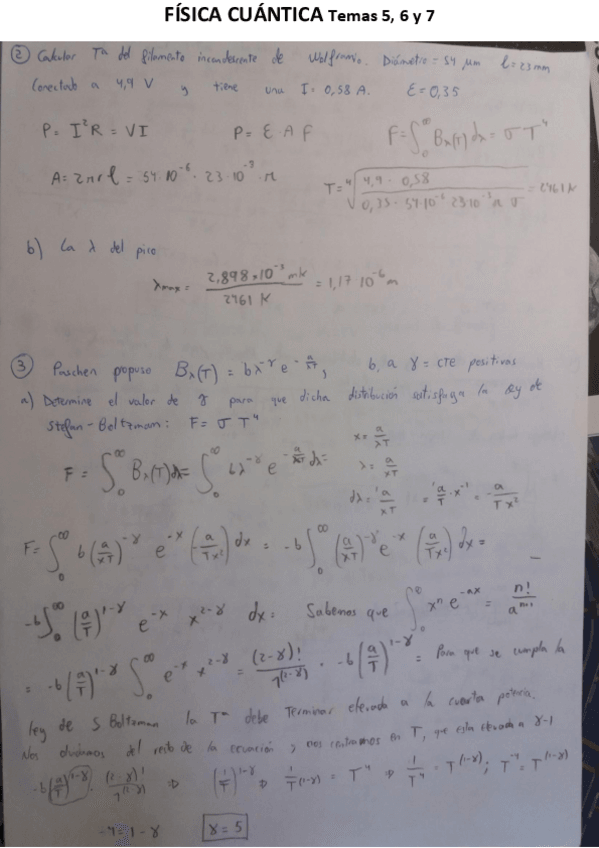 FÍSICA CUÁNTICA Temas 5, 6 y 7
② Calcular Tª del filamento incandescente de Wolframio. Diámetro = 54 μm l = 23 mm
Conectado a 4,9 V y tiene una I = 0,58 A. ε = 0,35
P = I²R = VI P = ε A F F = ∫₀^∞ Bλ(T) dλ = σ T⁴
A = 2πrl = 54·10⁻⁶ · 23·10⁻³ · π
b) La λ del pico
λmax = 2,898×10⁻³ mK / 2461 K = 1,17 10⁻⁶ m
③ Paschen popuso Bλ(T) = bλ^-γ e^-a/λT, b, a γ = cte positivas
a) Determine el valor de γ para que dicha distribución satisfaga la ley de
Stefan-Boltzmam: F = σ T⁴
x = a/λT
F = ∫₀^∞ Bλ(T)dλ = ∫₀^∞ bλ^-γ e^-a/λT dλ =
λ = a/xT
F = ∫₀^∞ b(a/xT)^-γ e^-x (-a/Tx²) dx = -b∫₀^∞ (a/xT)^-γ e^-x (a/Tx²) dx =
-b∫₀^∞ (a/T)^1-γ e^-x x^2-γ dx = Sabemos que ∫₀^∞ x^n e^-ax = n!/a^n+1
= -b(a/T)^1-γ ∫₀^∞ e^-x x^2-γ = (2-γ)!/1^(2-γ) · -b(a/T)^1-γ = Para que se cumpla la
ley de S Boltzman la Tª debe Terminar elevada a la cuarta potencia.
Nos olvidamos del resto de la ecuación y nos centramos en T, que esta elevada a γ-1
-b(a/T)^1-γ · (2-γ)!/1^(2-γ) ⇒ (1/T)^1-γ ⇒ 1/T^(1-γ) = T⁴ ⇒ 1/T⁴ = T^(1-γ); T^-4 = T^(1-γ)
-4 = 1-γ γ = 5